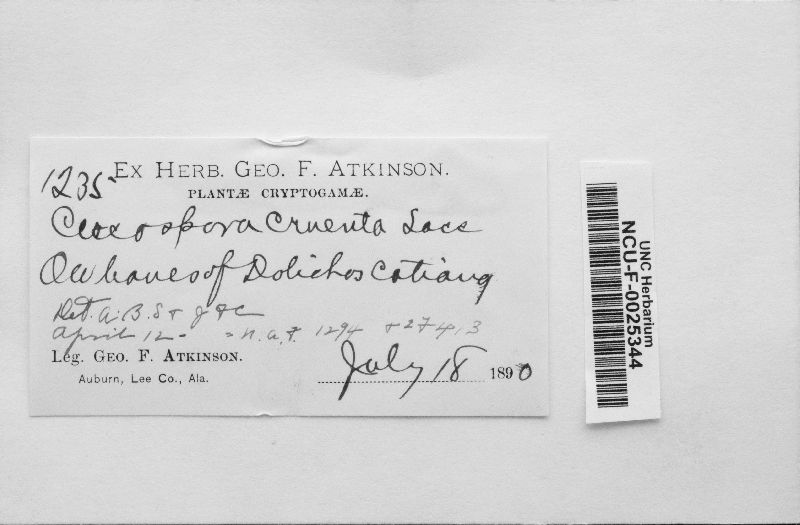 1235 EX HERB. GEO. F. ATKINSON.
PLANTÆ CRYPTOGAMÆ.
Cercospora cruenta Sacc
On leaves of Dolichos catiang
Det. A. B. S + J
April 12 - = N. A. F. 1294 + 2743
Leg. GEO. F. ATKINSON.
Auburn, Lee Co., Ala. July 18 1890
UNC Herbarium
NCU-F-0025344